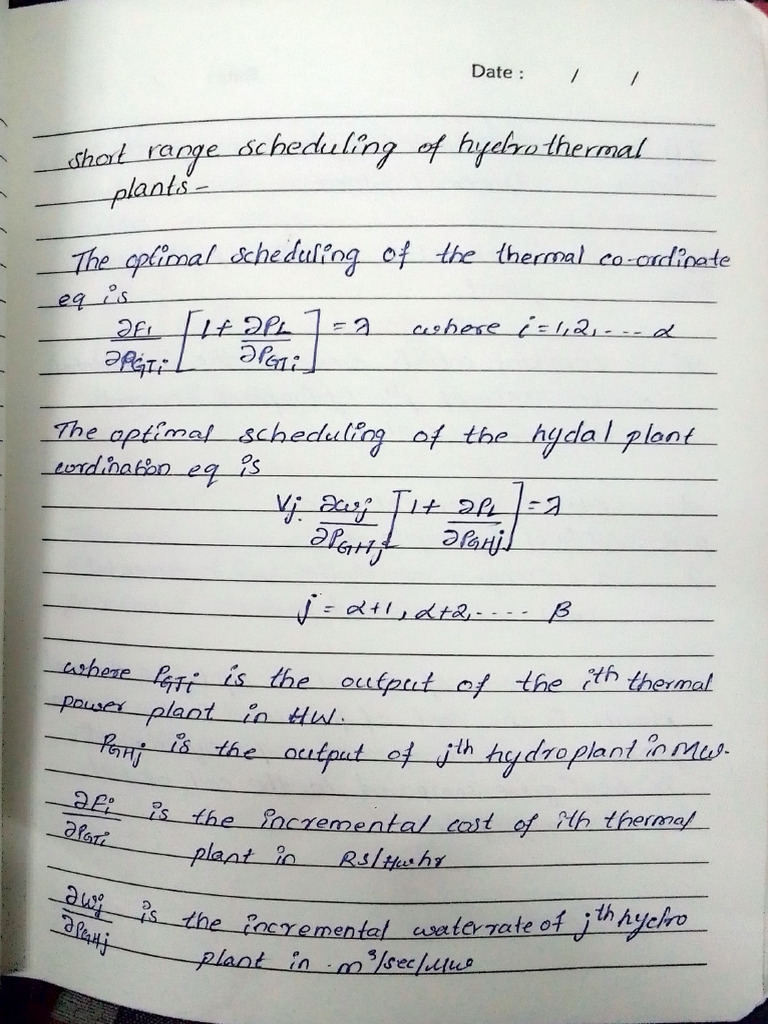 Date :    /    /
short range scheduling of hydrothermal
plants-
The optimal scheduling of the thermal co-ordinate
eq is
∂Fi/∂PGTi [1 + ∂PL/∂PGTi] = λ where i = 1, 2, .... α
The optimal scheduling of the hydal plant
cordination eq is
Vj. ∂wj/∂PGHj [1 + ∂PL/∂PGHj] = λ
j = α+1, α+2, ..... β
where PGTi is the output of the ith thermal
power plant in MW.
PGHj is the output of jth hydroplant in MW.
∂Fi/∂PGTi is the incremental cost of ith thermal
plant in RS/Mwhr
∂wj/∂PGHj is the incremental water rate of jth hydro
plant in m³/sec/Mw